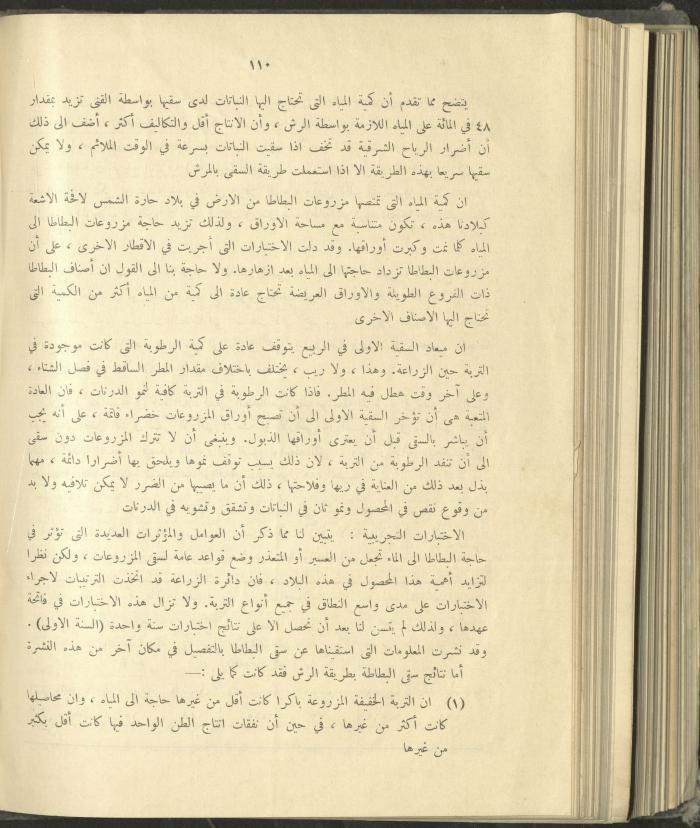 ١١٠
يتضح مما تقدم أن كمية المياه التى تحتاج اليها النباتات لدى سقيها بواسطة القنى تزيد بمقدار
٤٨ في المائة على المياه اللازمة بواسطة الرش ، وأن الانتاج أقل والتكاليف أكثر ، أضف الى ذلك
أن أضرار الرياح الشرقية قد تخف اذا سقيت النباتات بسرعة في الوقت الملائم ، ولا يمكن
سقيها سريعا بهذه الطريقة الا اذا استعملت طريقة السقى بالمرش
ان كمية المياه التى تمتصها مزروعات البطاطا من الارض في بلاد حارة الشمس لافحة الاشعة
كبلادنا هذه ، تكون متناسبة مع مساحة الاوراق ، ولذلك تزيد حاجة مزروعات البطاطا الى
المياه كلما نمت وكبرت أوراقها. وقد دلت الاختبارات التى أجريت في الاقطار الاخرى ، على أن
مزروعات البطاطا تزداد حاجتها الى المياه بعد ازهارها. ولا حاجة بنا الى القول ان أصناف البطاطا
ذات الفروع الطويلة والاوراق العريضة تحتاج عادة الى كمية من المياه أكثر من الكمية التى
تحتاج اليها الاصناف الاخرى
ان ميعاد السقية الاولى في الربيع يتوقف عادة على كمية الرطوبة التى كانت موجودة في
التربة حين الزراعة. وهذا ، ولا ريب ، يختلف باختلاف مقدار المطر الساقط في فصل الشتاء ،
وعلى آخر وقت هطل فيه المطر. فاذا كانت الرطوبة في التربة كافية لنمو الدرنات ، فان العادة
المتعبة هى أن تؤخر السقية الاولى الى أن تصبح أوراق المزروعات خضراء قاتمة ، على أنه يجب
أن يباشر بالسقى قبل أن يعترى أوراقها الذبول. وينبغى أن لا تترك المزروعات دون سقى
الى أن تنفد الرطوبة من التربة ، لان ذلك يسبب توقف نموها ويلحق بها أضرارا دائمة ، مهما
بذل بعد ذلك من العناية في ريها وفلاحتها ، ذلك أن ما يصيبها من الضرر لا يمكن تلافيه ولا بد
من وقوع نقص في المحصول ونمو ثان في النباتات وتشقق وتشويه في الدرنات
الاختبارات التجريبية : يتبين لنا مما ذكر أن العوامل والمؤثرات العديدة التى تؤثر في
حاجة البطاطا الى الماء تجعل من العسير أو المتعذر وضع قواعد عامة لسقى المزروعات ، ولكن نظرا
لتزايد أهمية هذا المحصول في هذه البلاد ، فان دائرة الزراعة قد اتخذت الترتيبات لاجراء
الاختبارات على مدى واسع النطاق في جميع أنواع التربة. ولا تزال هذه الاختبارات في فاتحة
عهدها ، ولذلك لم يتسن لنا بعد أن نحصل الا على نتائج اختبارات سنة واحدة (السنة الاولى) .
وقد نشرت المعلومات التى استقيناها عن سقى البطاطا بالتفصيل في مكان آخر من هذه النشرة
أما نتائج سقى البطاطة بطريقة الرش فقد كانت كما يلى :—
(١) ان التربة الخفيفة المزروعة باكرا كانت أقل من غيرها حاجة الى المياه ، وان محاصيلها
كانت أكثر من غيرها ، في حين أن نفقات انتاج الطن الواحد فيها كانت أقل بكثير
من غيرها